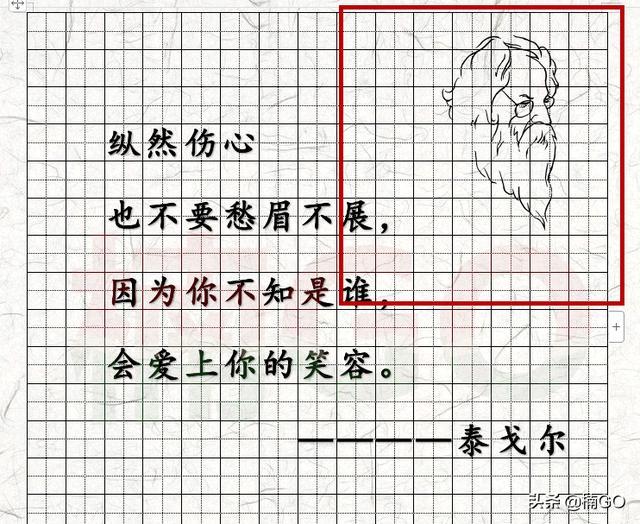 纵然伤心
也不要愁眉不展，
因为你不知是谁，
会爱上你的笑容。
————泰戈尔
头条 @楠GO